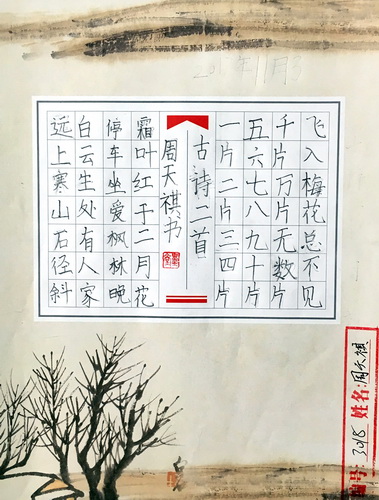 远上寒山石径斜
白云生处有人家
停车坐爱枫林晚
霜叶红于二月花
古诗二首
周天祺书
一片二片三四片
五六七八九十片
千片万片无数片
飞入梅花总不见
编号: 3015 姓名: 周天祺